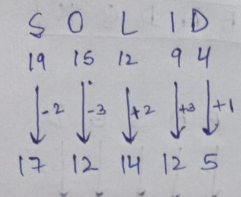 S O L I D
19 15 12 9 4
-2 -3 +2 +3 +1
17 12 14 12 5